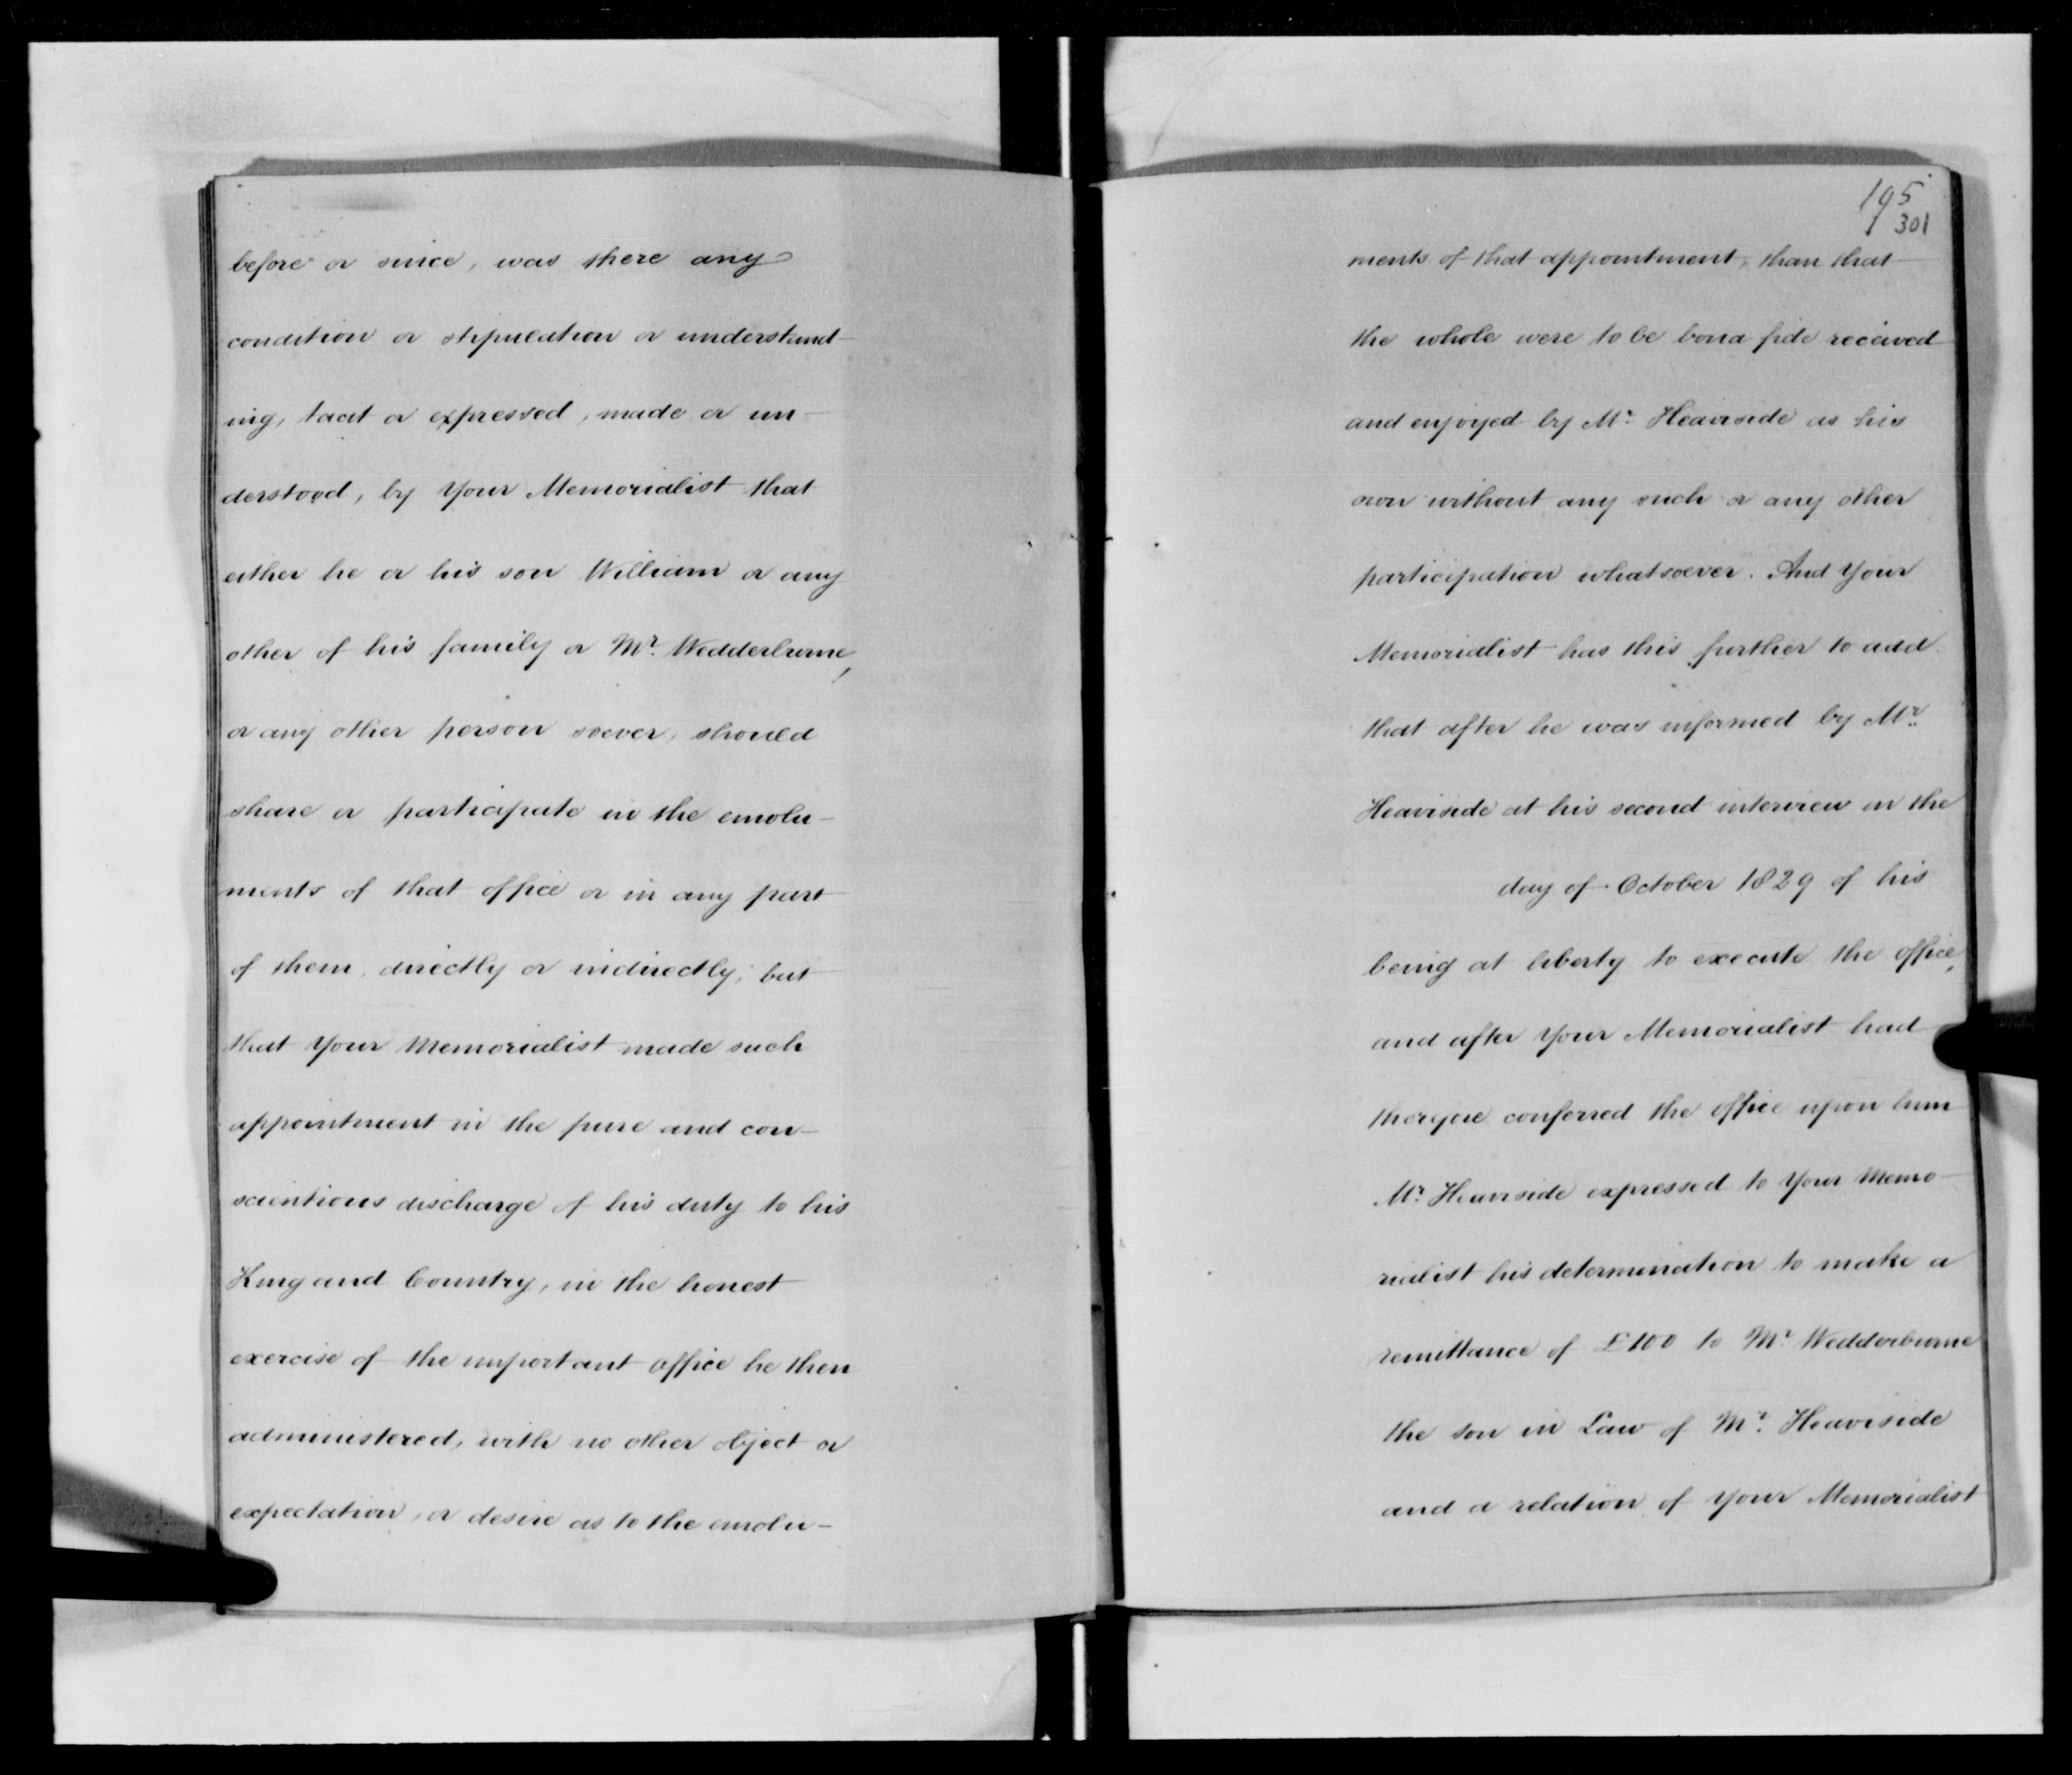 before or since, was there any
condition or stipulation or understand-
ing, tacit or expressed, made or un-
derstood, by Your Memorialist that
either he or his son William or any
other of his family or Mr. Wedderburne,
or any other person soever, should
share or participate in the emolu-
ments of that office or in any part
of them, directly or indirectly; but
that Your Memorialist made such
appointment in the pure and con-
scientious discharge of his duty to his
King and Country, in the honest
exercise of the important office he then
administered, with no other object or
expectation, or desire as to the emolu-
195
301
ments of that appointment, than that
the whole were to be bona fide received
and enjoyed by Mr. Heaviside as his
own without any such or any other
participation whatsoever. And Your
Memorialist has this further to add
that after he was informed by Mr.
Heaviside at his second interview on the
day of October 1829 of his
being at liberty to execute the office,
and after Your Memorialist had
therefore conferred the office upon him
Mr. Heaviside expressed to Your Memo-
rialist his determination to make a
remittance of £100 to Mr. Wedderburne
the son in Law of Mr. Heaviside
and a relation of Your Memorialist